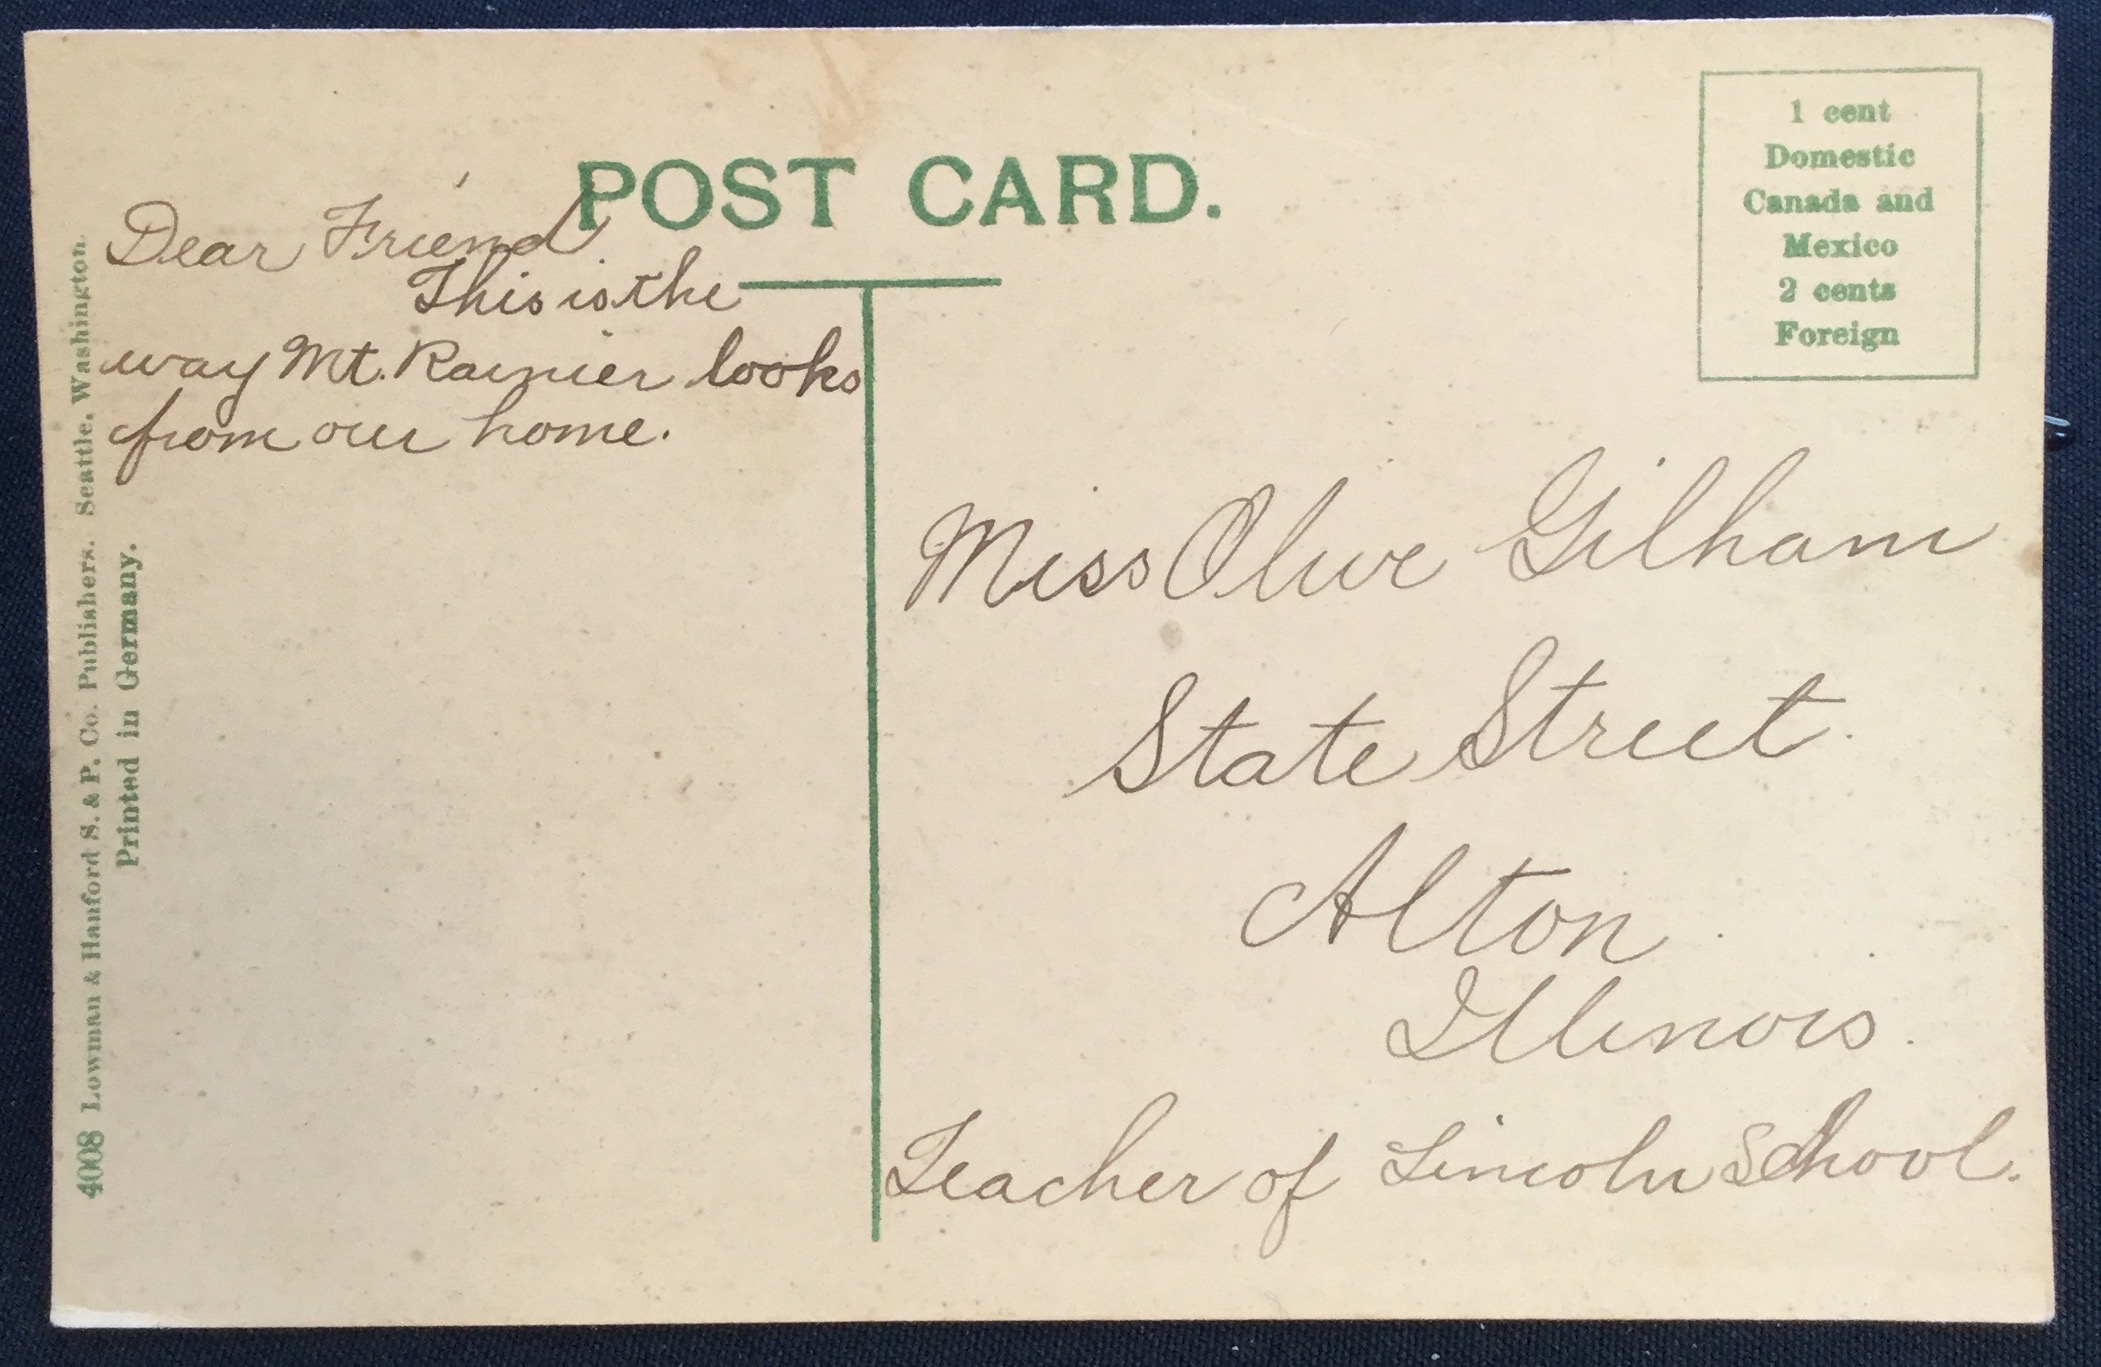 POST CARD.
1 cent
Domestic
Canada and
Mexico
2 cents
Foreign
Dear Friend.
This is the
way Mt. Rainier looks
from our home.
Miss Olive Gilham
State Street.
Alton.
Illinois.
Teacher of Lincoln School.
4008 Lowman & Hanford S. & P. Co. Publishers. Seattle. Washington.
Printed in Germany.